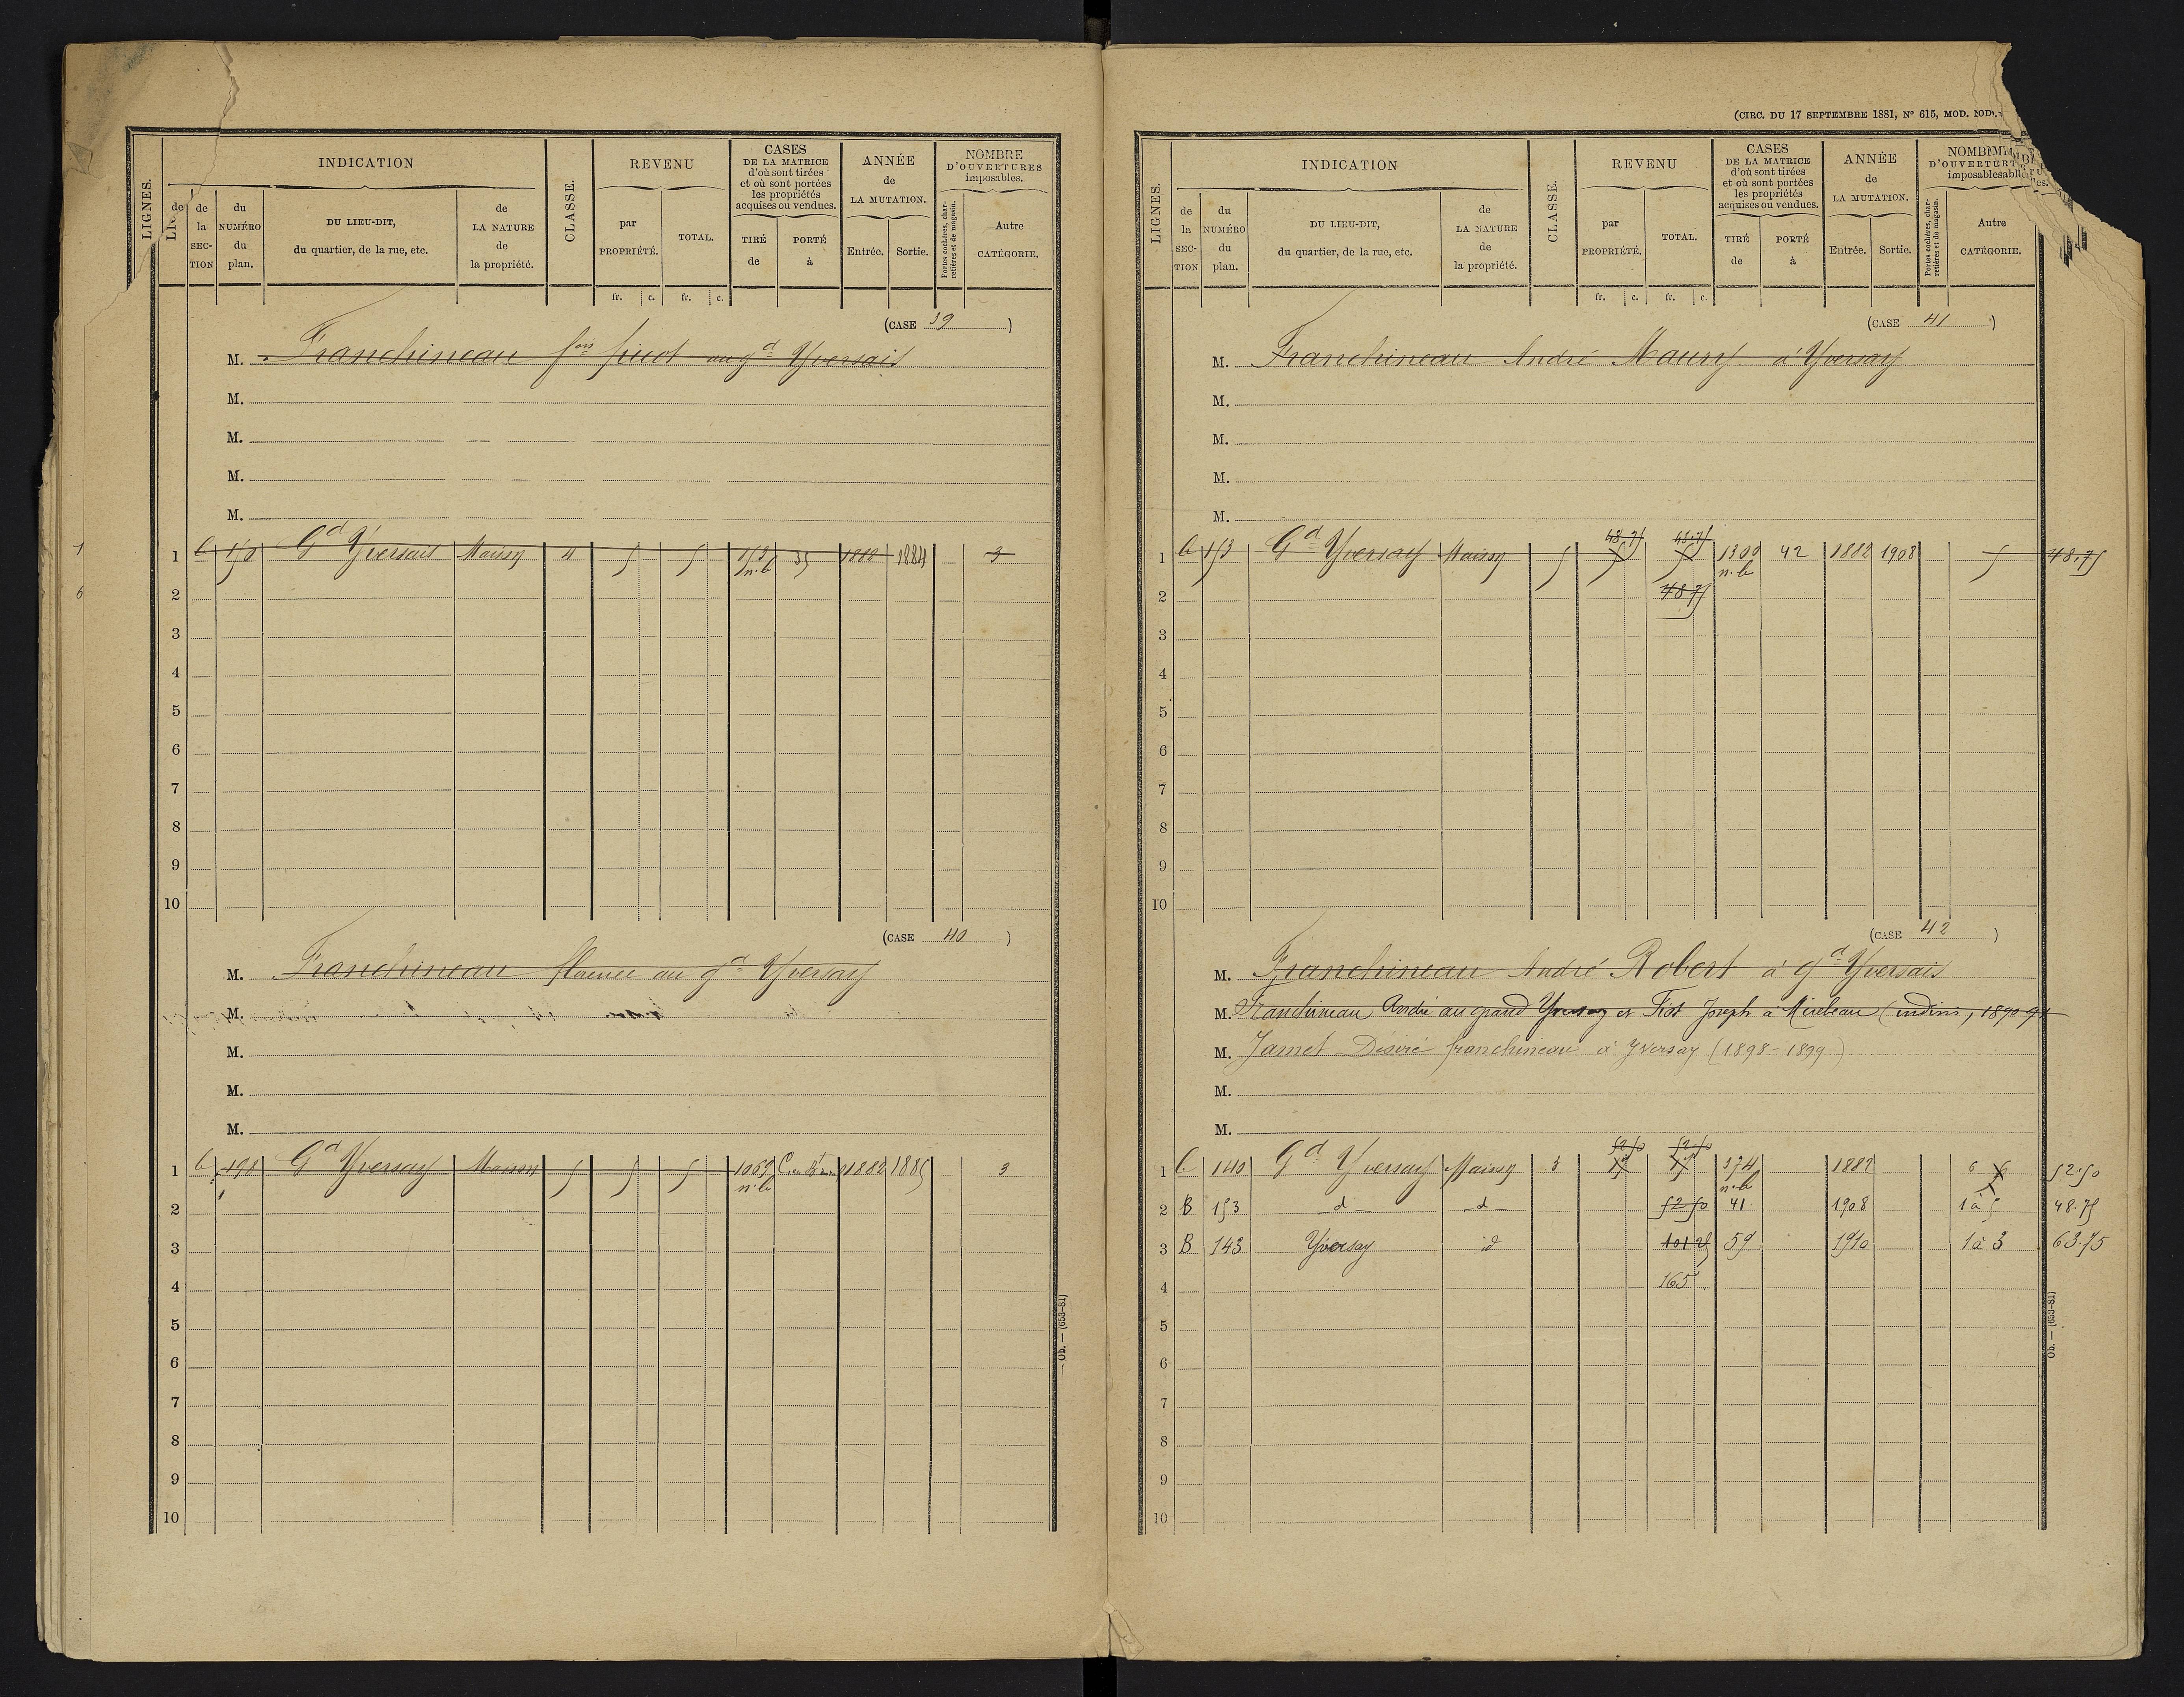 (CIRC. DU 17 SEPTEMBRE 1881, N° 615, MOD.
LIGNES.
INDICATION
de la SECTION
du NUMÉRO du plan.
DU LIEU-DIT, du quartier, de la rue, etc.
de LA NATURE de la propriété.
CLASSE.
REVENU
par PROPRIÉTÉ.
TOTAL.
CASES DE LA MATRICE d'où sont tirées et où sont portées les propriétés acquises ou vendues.
TIRÉ de
PORTÉ à
ANNÉE de LA MUTATION.
Entrée.
Sortie.
NOMBRE D'OUVERTURES imposables.
Portes cochères, charretières et de magasin.
Autre CATÉGORIE.
fr. c. fr. c.
(CASE 39 )
M. Franchineau fois picot au gd Yversais
M.
M.
M.
M.
1 150 Gd Yversais Maison 4 5 5 35 1882 1884 3
n.b
2
3
4
5
6
7
8
9
10
(CASE 40 )
M. Franchineau au gd Yversay
M.
M.
M.
M.
1 191 Gd Yversay Maison 5 5 5 1882 1885 3
n.b
2
3
4
5
6
7
8
9
10
Ob. — (653-81)
LIGNES.
INDICATION
de la SECTION
du NUMÉRO du plan.
DU LIEU-DIT, du quartier, de la rue, etc.
de LA NATURE de la propriété.
CLASSE.
REVENU
par PROPRIÉTÉ.
TOTAL.
CASES DE LA MATRICE d'où sont tirées et où sont portées les propriétés acquises ou vendues.
TIRÉ de
PORTÉ à
ANNÉE de LA MUTATION.
Entrée.
Sortie.
Portes cochères, charretières et de magasin.
Autre CATÉGORIE.
fr. c. fr. c.
(CASE 41 )
M. Franchineau André Maury à Yversay
M.
M.
M.
M.
48,75 48,75
1 b 153 Gd Yversay Maison 5 1300 42 1882 1908 5 48,75
n.b
2 48.75
3
4
5
6
7
8
9
10
(CASE 42 )
M. Franchineau André Robert à gd Yversais
M. Franchineau André au grand Yversay et Fiot Joseph à Mirebeau (indivis, 1890-91
M. Jamet Désiré franchineau à Yversay (1898-1899)
M.
M.
52.50 52.50
1 b 140 Gd Yversay Maison 3 374 1882 6 52.50
n.b
2 B 153 d d 52 50 41 1908 1 à 5 48.75
3 B 143 Yversay id 101 25 59 1910 1 à 3 63.75
4 165
5
6
7
8
9
10
Ob. — (653-81)